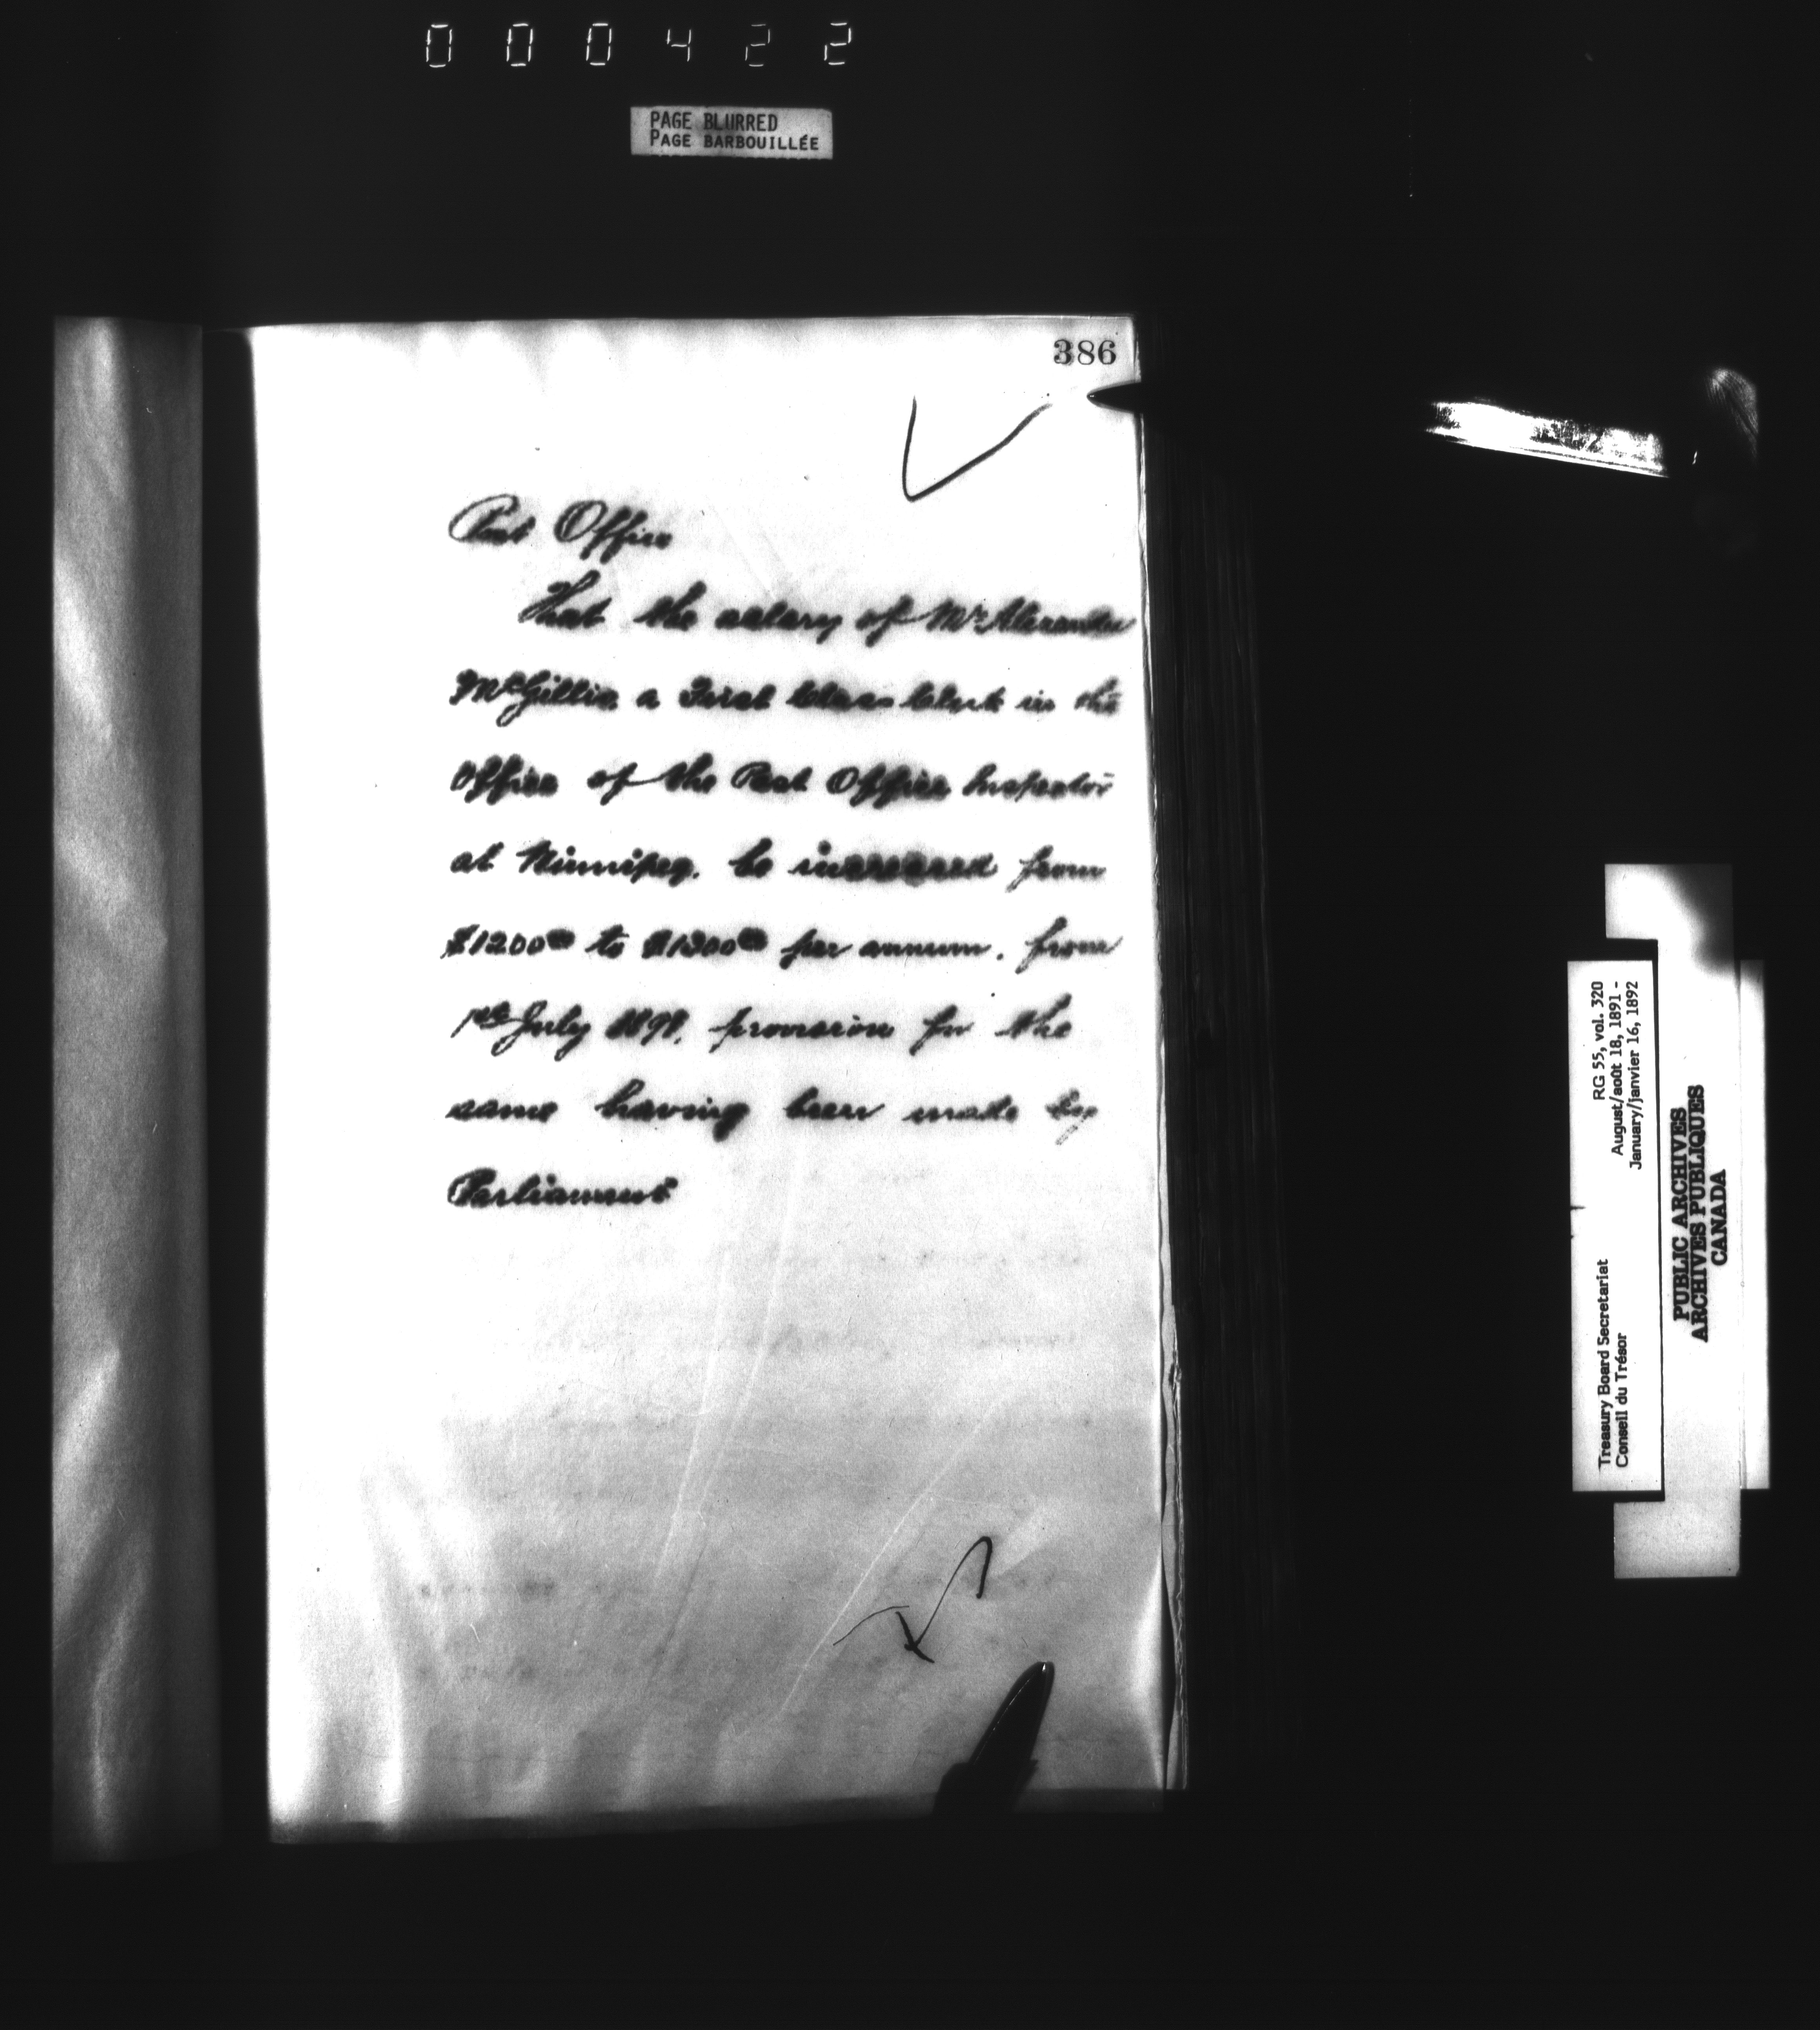 000422
PAGE BLURRED
PAGE BARBOUILLÉE
386
Post Office
That the salary of Mr Alexander
McGillis, a First Class Clerk in the
Office of the Post Office Inspector
at Winnipeg, be increased from
$1200⁰⁰ to $1300⁰⁰ per annum, from
1st July 1891, provision for the
same having been made by
Parliament
RG 55, vol. 320
August/août 18, 1891 -
January/janvier 16, 1892
Treasury Board Secretariat
Conseil du Trésor
PUBLIC ARCHIVES
ARCHIVES PUBLIQUES
CANADA